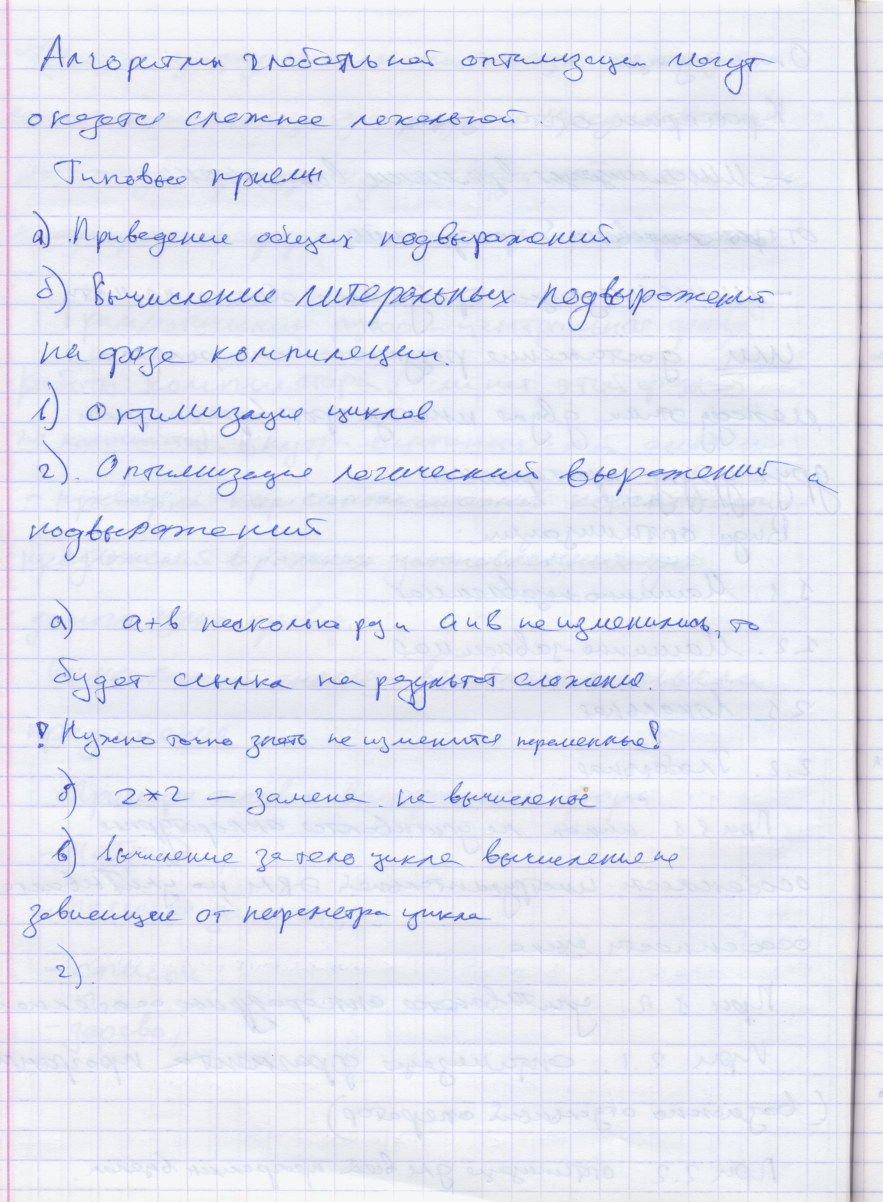 Алгоритмы глобальной оптимизации могут
оказатся сложнее локальной.
Типовые приемы
а) Приведение общих подвыражений
б) Вычисление литеральных подвыражений
на фазе компиляции.
в) Оптимизация циклов
г). Оптимизация логический выражений и
подвыражений
а) а+в несколько раз и а и в не изменились, то
будет ссылка на результат сложения.
! Нужно точно знать не изменится переменные!
б) 2*2 — замена на вычисленные
в) Вычисление за тело цикла вычисление не
зависящие от параметра цикла
г).